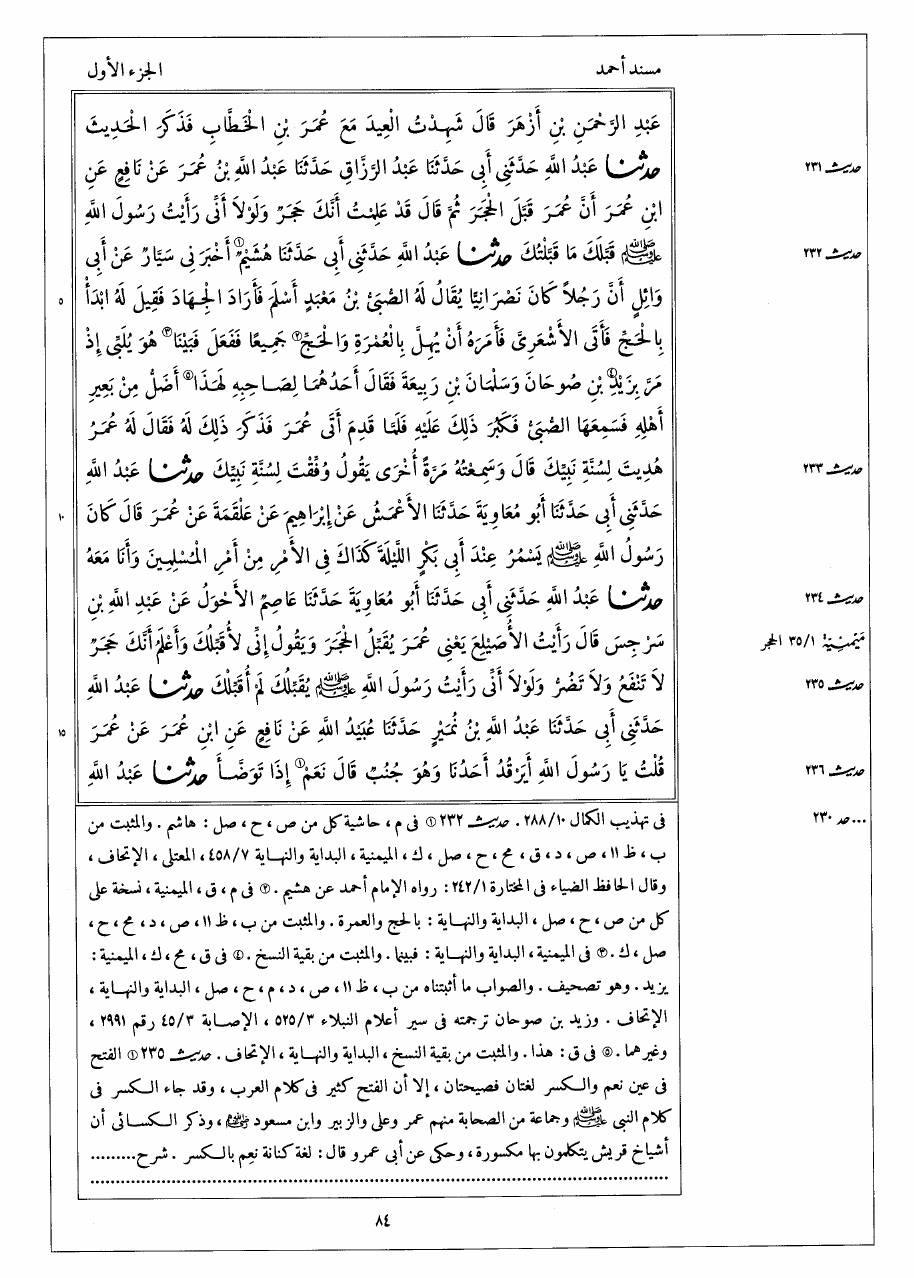 مسند أحمد الجزء الأول
عَبْدِ الرَّحْمَنِ بْنِ أَزْهَرَ قَالَ شَهِدْتُ الْعِيدَ مَعَ عُمَرَ بْنِ الْخَطَّابِ فَذَكَرَ الْحَدِيثَ
حديث ٢٣١ حدثنا عَبْدُ اللَّهِ حَدَّثَنِي أَبِي حَدَّثَنَا عَبْدُ الرَّزَّاقِ حَدَّثَنَا عَبْدُ اللَّهِ بْنُ عُمَرَ عَنْ نَافِعٍ عَنِ
ابْنِ عُمَرَ أَنَّ عُمَرَ قَبَّلَ الْحَجَرَ ثُمَّ قَالَ قَدْ عَلِمْتُ أَنَّكَ حَجَرٌ وَلَوْلاَ أَنِّي رَأَيْتُ رَسُولَ اللَّهِ
حديث ٢٣٢ ﷺ قَبَّلَكَ مَا قَبَّلْتُكَ حدثنا عَبْدُ اللَّهِ حَدَّثَنِي أَبِي حَدَّثَنَا هُشَيْمٌ① أَخْبَرَنِي سَيَّارٌ عَنْ أَبِي
وَائِلٍ أَنَّ رَجُلاً كَانَ نَصْرَانِيًّا يُقَالُ لَهُ الصُّبَىُّ بْنُ مَعْبَدٍ أَسْلَمَ فَأَرَادَ الْجِهَادَ فَقِيلَ لَهُ ابْدَأْ ٥
بِالْحَجِّ فَأَتَى الأَشْعَرِىَّ فَأَمَرَهُ أَنْ يُهِلَّ بِالْعُمْرَةِ وَالْحَجِّ② جَمِيعًا فَفَعَلَ فَبَيْنَا③ هُوَ يُلَبِّى إِذْ
مَرَّ بِزَيْدِ④ بْنِ صُوحَانَ وَسَلْمَانَ بْنِ رَبِيعَةَ فَقَالَ أَحَدُهُمَا لِصَاحِبِهِ لَهَذَا⑤ أَضَلُّ مِنْ بَعِيرِ
أَهْلِهِ فَسَمِعَهَا الصُّبَىُّ فَكَبُرَ ذَلِكَ عَلَيْهِ فَلَمَّا قَدِمَ أَتَى عُمَرَ فَذَكَرَ ذَلِكَ لَهُ فَقَالَ لَهُ عُمَرُ
حديث ٢٣٣ هُدِيتَ لِسُنَّةِ نَبِيِّكَ قَالَ وَسَمِعْتُهُ مَرَّةً أُخْرَى يَقُولُ وُفِّقْتَ لِسُنَّةِ نَبِيِّكَ حدثنا عَبْدُ اللَّهِ
حَدَّثَنِي أَبِي حَدَّثَنَا أَبُو مُعَاوِيَةَ حَدَّثَنَا الأَعْمَشُ عَنْ إِبْرَاهِيمَ عَنْ عَلْقَمَةَ عَنْ عُمَرَ قَالَ كَانَ ١٠
رَسُولُ اللَّهِ ﷺ يَسْمُرُ عِنْدَ أَبِي بَكْرٍ اللَّيْلَةَ كَذَاكَ فِي الأَمْرِ مِنْ أَمْرِ الْمُسْلِمِينَ وَأَنَا مَعَهُ
حديث ٢٣٤ حدثنا عَبْدُ اللَّهِ حَدَّثَنِي أَبِي حَدَّثَنَا أَبُو مُعَاوِيَةَ حَدَّثَنَا عَاصِمٌ الأَحْوَلُ عَنْ عَبْدِ اللَّهِ بْنِ
مَيْمَنِيّة ٣٥/١ الحجر سَرْجِسَ قَالَ رَأَيْتُ الأُصَيْلِعَ يَعْنِي عُمَرَ يُقَبِّلُ الْحَجَرَ وَيَقُولُ إِنِّي لأُقَبِّلُكَ وَأَعْلَمُ أَنَّكَ حَجَرٌ
حديث ٢٣٥ لاَ تَنْفَعُ وَلاَ تَضُرُّ وَلَوْلاَ أَنِّي رَأَيْتُ رَسُولَ اللَّهِ ﷺ يُقَبِّلُكَ لَمْ أُقَبِّلْكَ حدثنا عَبْدُ اللَّهِ
حَدَّثَنِي أَبِي حَدَّثَنَا عَبْدُ اللَّهِ بْنُ نُمَيْرٍ حَدَّثَنَا عُبَيْدُ اللَّهِ عَنْ نَافِعٍ عَنِ ابْنِ عُمَرَ عَنْ عُمَرَ ١٥
حديث ٢٣٦ قُلْتُ يَا رَسُولَ اللَّهِ أَيَرْقُدُ أَحَدُنَا وَهُوَ جُنُبٌ قَالَ نَعَمْ① إِذَا تَوَضَّأَ حدثنا عَبْدُ اللَّهِ
...حد ٢٣٠ في تهذيب الكمال ٢٨٨/١٠. حديث ٢٣٢ ① في م، حاشية كل من ص، ح، صل: هاشم. والمثبت من
ب، ظ ١١، ص، د، ق، مح، ح، صل، ك، الميمنية، البداية والنهاية ٤٥٨/٧، المعتلى، الإتحاف،
وقال الحافظ الضياء في المختارة ٢٤٢/١: رواه الإمام أحمد عن هشيم. ② في م، ق، الميمنية، نسخة على
كل من ص، ح، صل، البداية والنهاية: بالحج والعمرة. والمثبت من ب، ظ ١١، ص، د، مح، ح،
صل، ك. ③ في الميمنية، البداية والنهاية: فبينما. والمثبت من بقية النسخ. ④ في ق، مح، ك، الميمنية:
يزيد. وهو تصحيف. والصواب ما أثبتناه من ب، ظ ١١، ص، د، م، ح، صل، البداية والنهاية،
الإتحاف. وزيد بن صوحان ترجمته في سير أعلام النبلاء ٥٢٥/٣، الإصابة ٤٥/٣ رقم ٢٩٩١،
وغيرهما. ⑤ في ق: هذا. والمثبت من بقية النسخ، البداية والنهاية، الإتحاف. حديث ٢٣٥ ① الفتح
في عين نعم والكسر لغتان فصيحتان، إلا أن الفتح كثير في كلام العرب، وقد جاء الكسر في
كلام النبي ﷺ وجماعة من الصحابة منهم عمر وعلي والزبير وابن مسعود ﵃، وذكر الكسائي أن
أشياخ قريش يتكلمون بها مكسورة، وحكى عن أبي عمرو قال: لغة كنانة نعِم بالكسر. شرح.........
٨٤